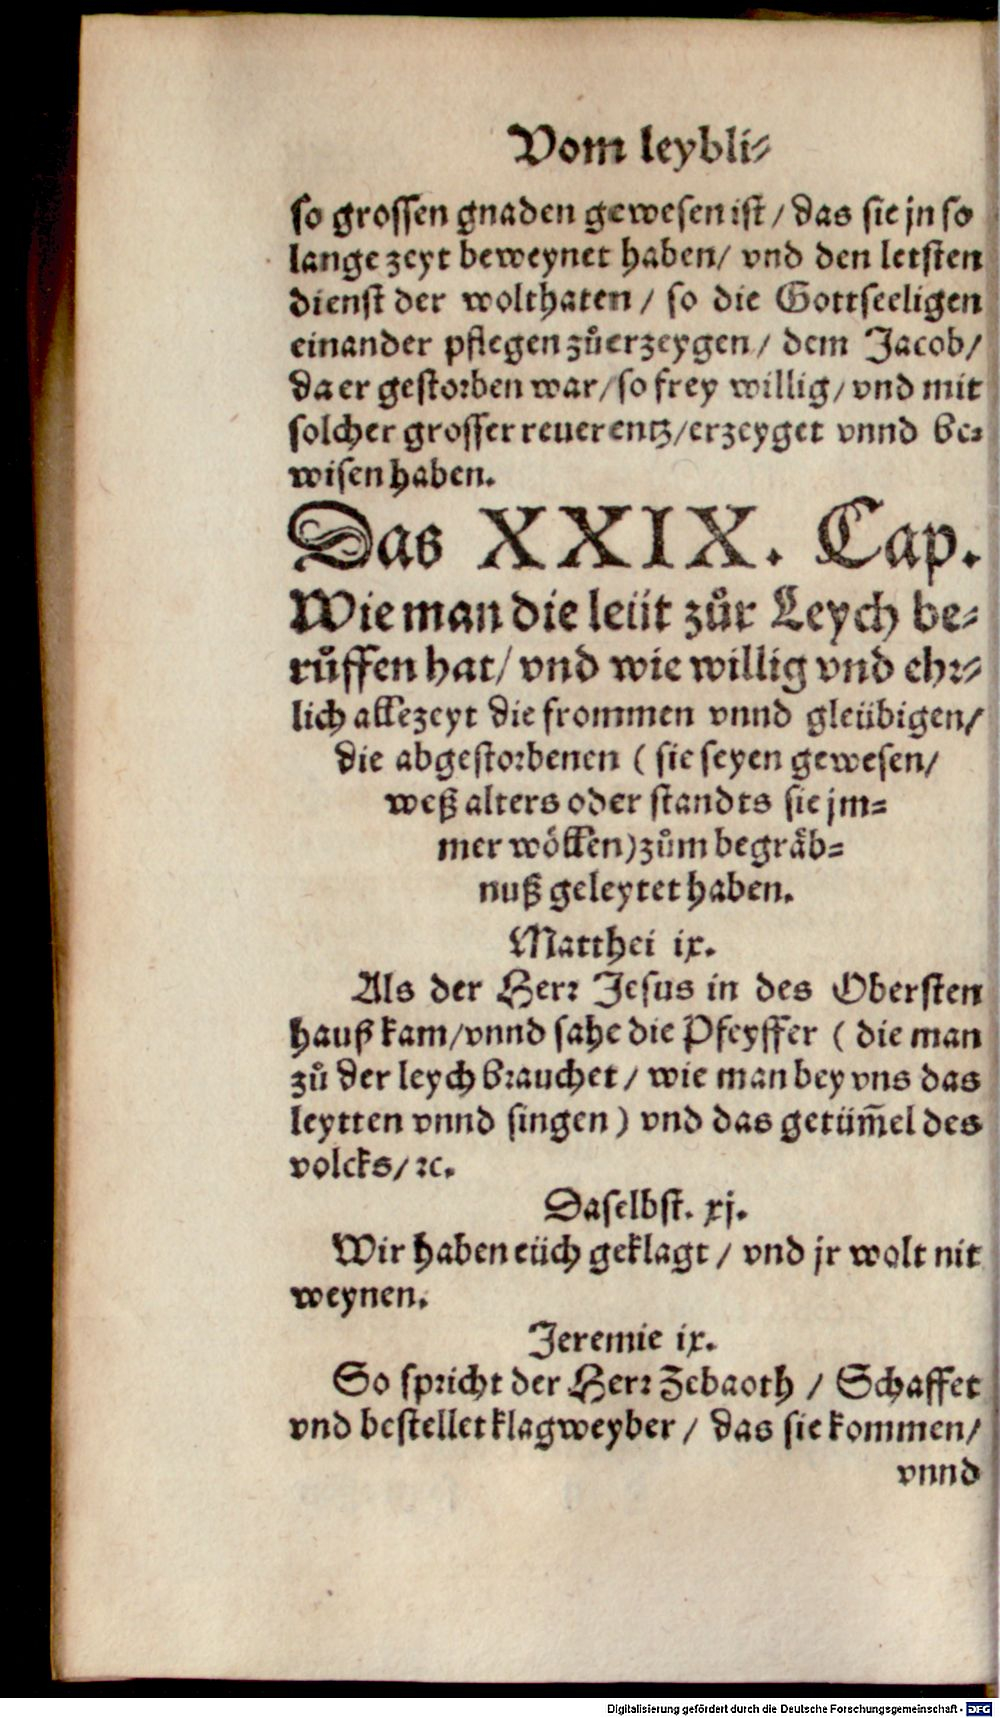 Vom leybli⸗
so grossen gnaden gewesen ist / das sie jn so
lange zeyt beweynet haben / vnd den letsten
dienst der wolthaten / so die Gottseeligen
einander pflegen zůerzeygen / dem Jacob /
da er gestorben war / so frey willig / vnd mit
solcher grosser reuerentz / erzeyget vnnd be⸗
wisen haben.
Das XXIX. Cap.
Wie man die leüt zůr Leych be⸗
růffen hat / vnd wie willig vnd ehr⸗
lich allezeyt die frommen vnnd gleübigen /
die abgestorbenen ( sie seyen gewesen /
weß alters oder standts sie jm⸗
mer wöllen) zům begräb⸗
nuß geleytet haben.
Matthei ix.
Als der Herr Jesus in des Obersten
hauß kam / vnnd sahe die Pfeyffer ( die man
zů der leych brauchet / wie man bey vns das
leytten vnnd singen ) vnd das getüm̃el des
volcks / ꝛc.
Daselbst. xj.
Wir haben eüch geklagt / vnd jr wolt nit
weynen.
Jeremie ix.
So spricht der Herr Zebaoth / Schaffet
vnd bestellet klagweyber / das sie kommen /
vnnd
Digitalisierung gefördert durch die Deutsche Forschungsgemeinschaft - DFG